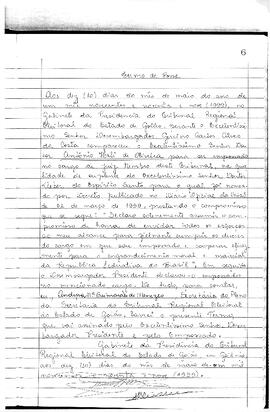 6
Termo de Posse
Aos dez (10) dias do mês de maio do ano de
um mil novecentos e noventa e nove (1999), no
Gabinete da Presidência do Tribunal Regional
Eleitoral do Estado de Goiás, perante o Excelentíssimo
Senhor Desembargador Carlos
da Costa compareceu o Excelentíssimo Senhor Dou-
tor Antônio de Oliveira para ser empossado
no cargo de Juiz Membro deste Tribunal, na qua-
lidade de suplente do Excelentíssimo Senhor Doutor
do Espírito Santo para o qual foi nomea-
do por Decreto publicado no Diário Oficial da União
de de março de 1999, prestando o compromisso
que se segue: "Declaro solenemente assumir o com-
promisso de haver de envidar todos os esforços
ao meu alcance para fielmente cumprir os deveres
do cargo em que sou empossado e cooperar eficaz-
mente para o engrandecimento moral e material
da República Federativa do Brasil". Em seguida
o Desembargador Presidente declarou-o empossado
no mencionado cargo. De tudo, para constar,
eu, Secretária de
da Secretaria do Tribunal Regional Eleitoral
do Estado de Goiás, lavrei o presente Termo,
que vai assinado pelo Excelentíssimo Senhor Desem-
bargador Presidente e pelo Empossado.
Gabinete da Presidência do Tribunal
Regional Eleitoral do Estado de Goiás, em Goiânia,
aos dez (10) dias do mês de maio de um mil
novecentos e noventa e nove (1999).